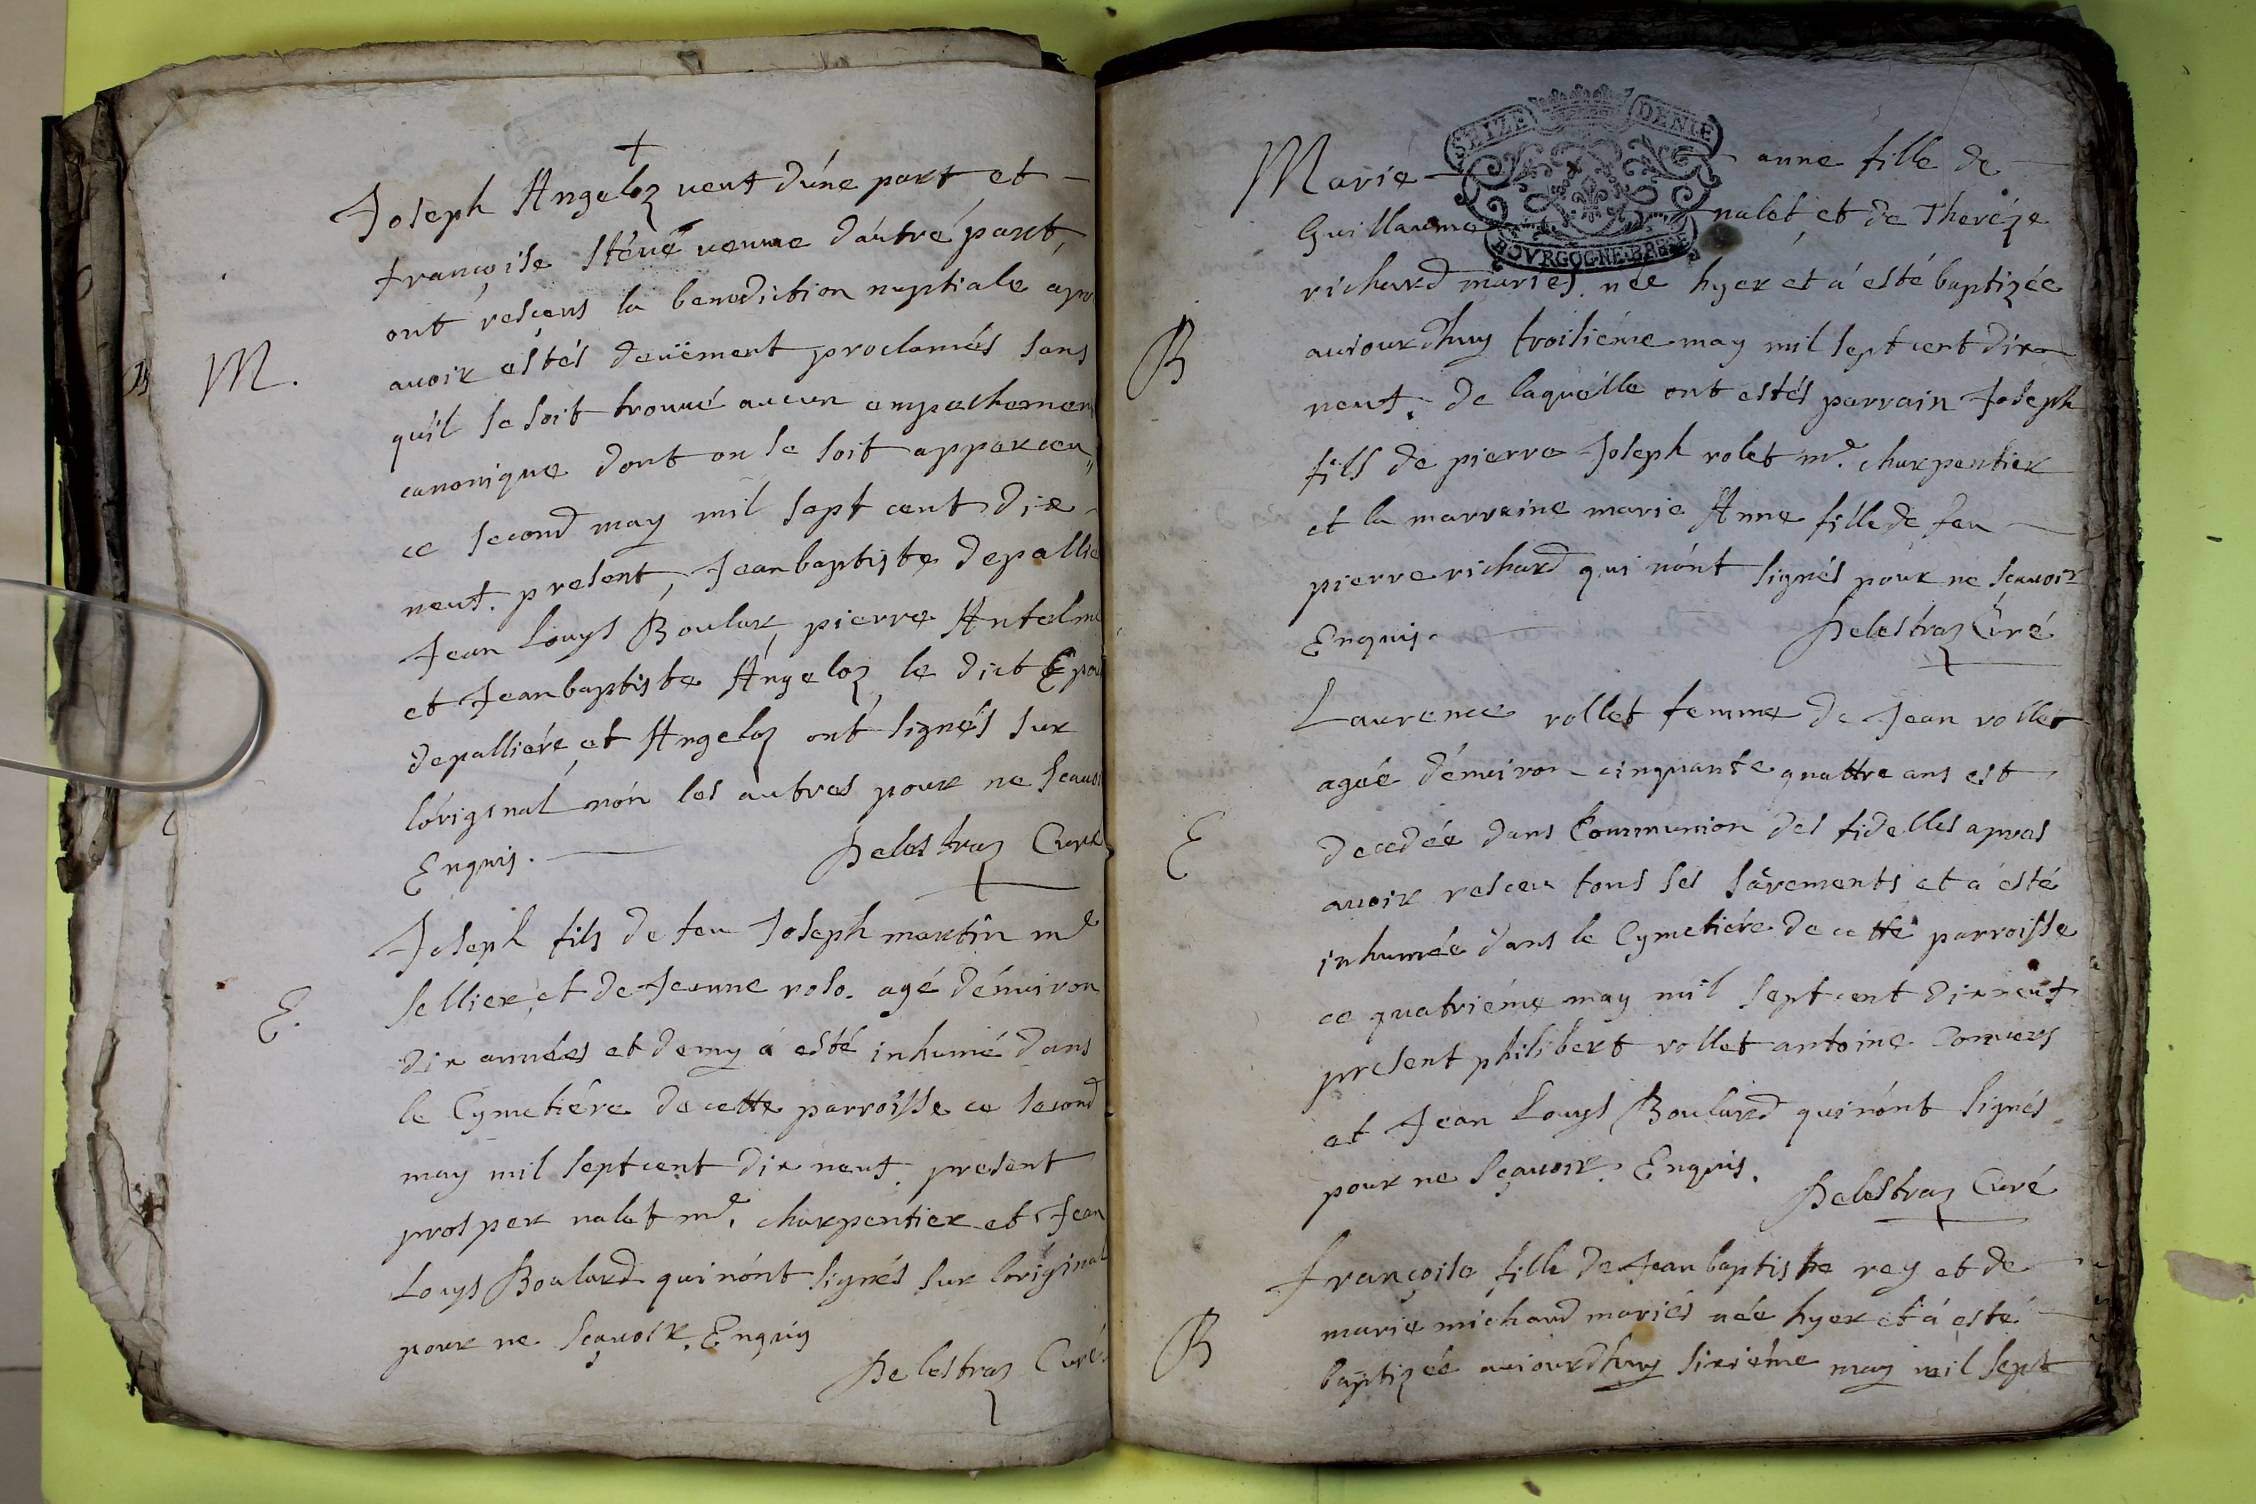 Joseph Angeloz veuf d'úne part et
françoise stéué veuue d'autré part,
ont resceus la benediction nuptiale ápr
auoir estés deuëment proclamés sans
M.
qu'il se soit trouué aucun empechemen
canonique dont on se soit apperceu,
ce second may mil sept cent dix
neuf. present, Jean baptiste depallie
Jean Louys Boular, pierre Antelme
et Jean baptiste Angeloz, le dict Epou
depalliere, et Angeloz ont signés sur
lóriginal nón les autres pour ne scauoi
Enquis.
Delestraz Curé
Joseph fils de feu Joseph martin mᵉ
sellier, et de Jeanne rolo. agé dénuiron
E.
dix années et demy á esté inhumé dans
le Cymetiére de cette parroisse ce second
may mil sept cent dix neuf. present
prosper nalet mᵉ. charpentier et Jean
Louys Boulard qui nónt signés sur lóriginal
pour ne sçauoir. Enquis
Delestraz Curé.
SEIZE DENIE
BOVRGOGNE BRESSE
Marie anne fille de
Guillaume nalet, et de Theréze
richard mariés. née hyer et á esté baptizée
auiourdhuy troisiéme may mil sept cent dix
B
neuf. de laquélle ont estés parrain Joseph
fils de pierre Joseph rolet mᵉ. charpentier
et la marraine marie Anne fille de feu
pierre richard qui nónt signés pour ne sçauoir
Enquis.
Delestraz Curé
Laurence rollet femme de Jean rollet
agée dénuiron cinquante quattre ans est
E
decedée dans Communion des fidelles apres
auoir resceu tous ses sácrements et á esté
inhumée dans le Cymetiére de cette parroisse
ce quatriéme may mil sept cent dix neuf
present philibert rollet antoine Conuers
et Jean Louys Boulard qui nónt signés
pour ne sçauoir. Enquis.
Delestraz Curé
françoise fille de Jean baptiste rey et de
marie michaud mariés née hyer et á esté
B
baptizée auiourdhuy sixiéme may mil sept